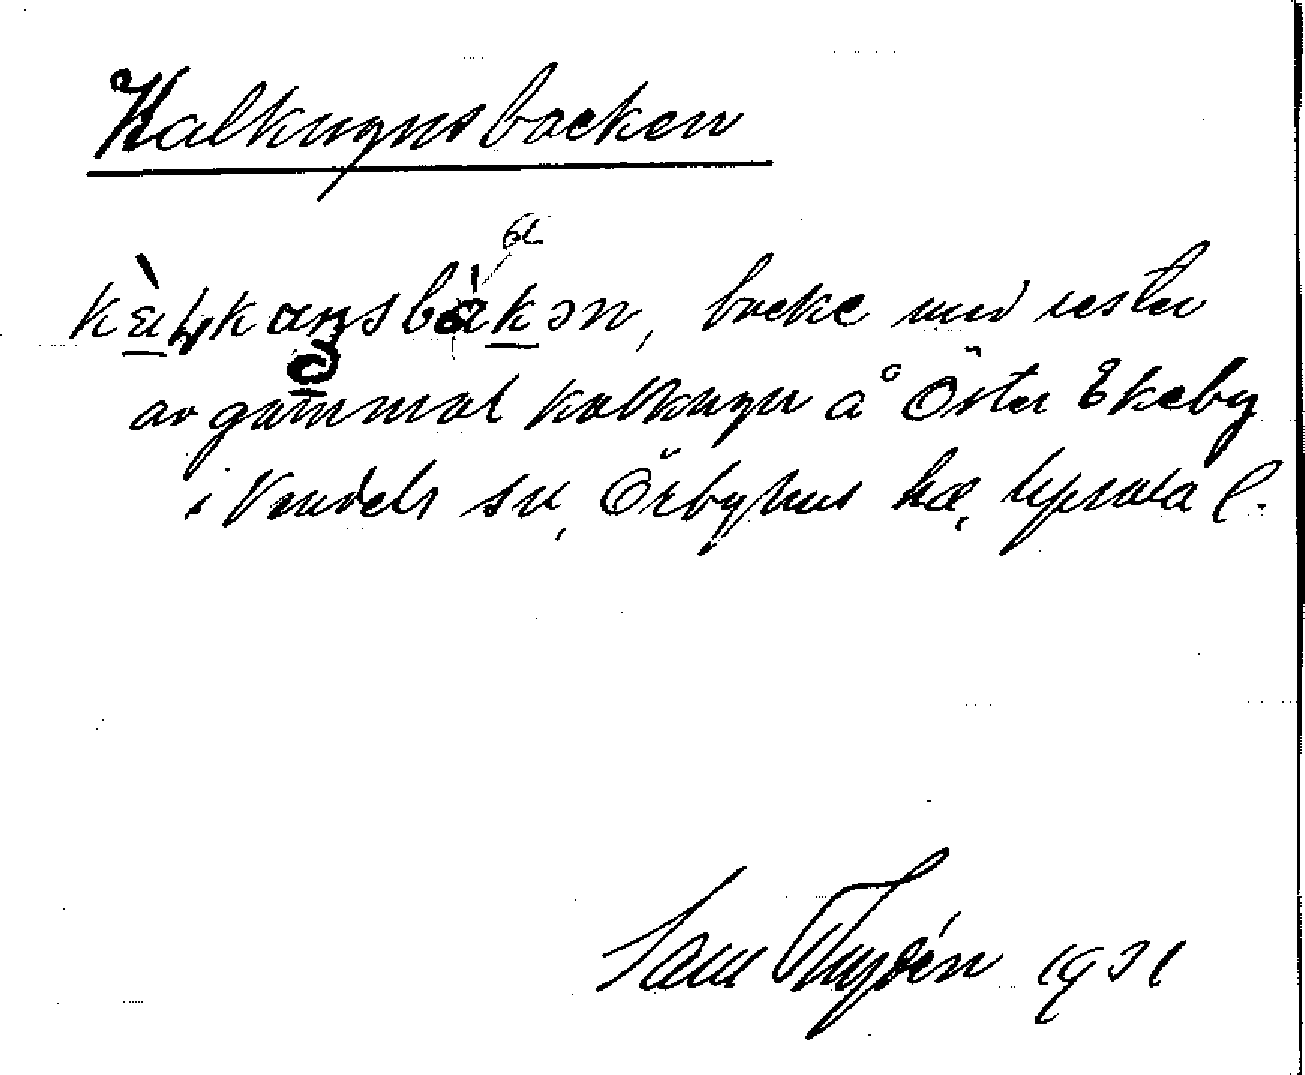 Kalkugnsbacken
backe med rester
av gammal kalkugn å Öster Ekeby
i Vendels sn, Örbyhus hd, Uppsala l.
Sam Thydén 1931